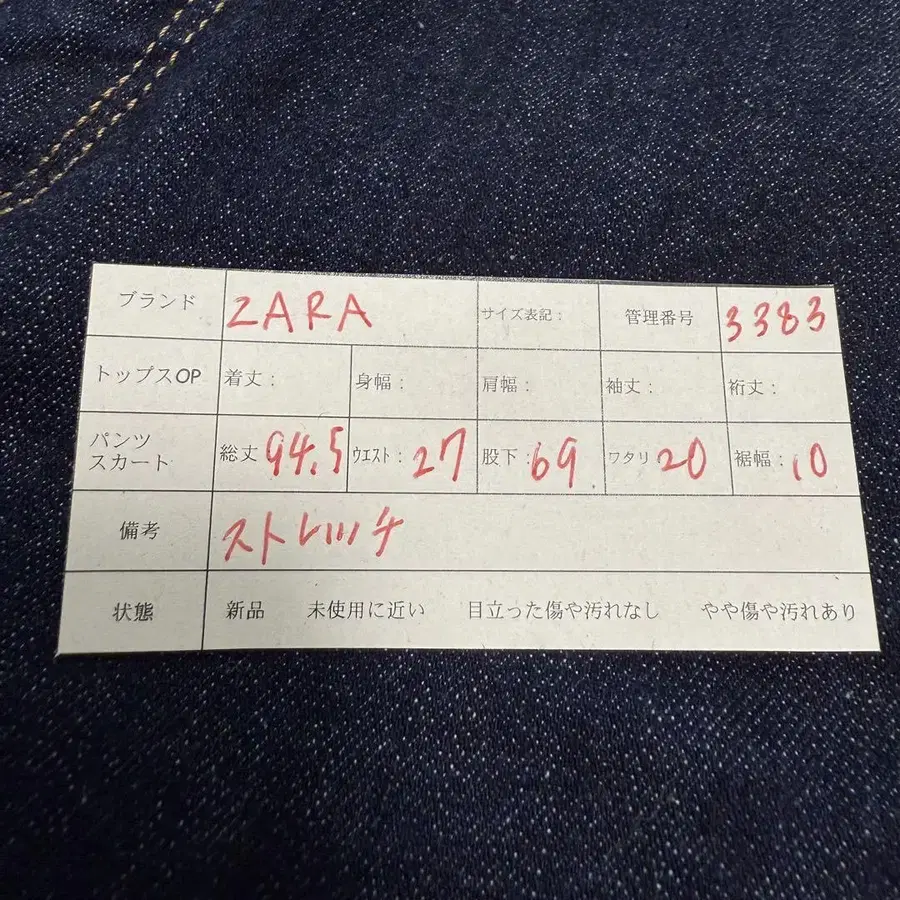 ブランド ZARA サイズ表記： 管理番号 3383
トップスOP 着丈： 身幅： 肩幅： 袖丈： 裄丈：
パンツ
スカート 総丈 94.5 ウエスト： 27 股下： 69 ワタリ 20 裾幅： 10
備考 ストレッチ
状態 新品 未使用に近い 目立った傷や汚れなし やや傷や汚れあり